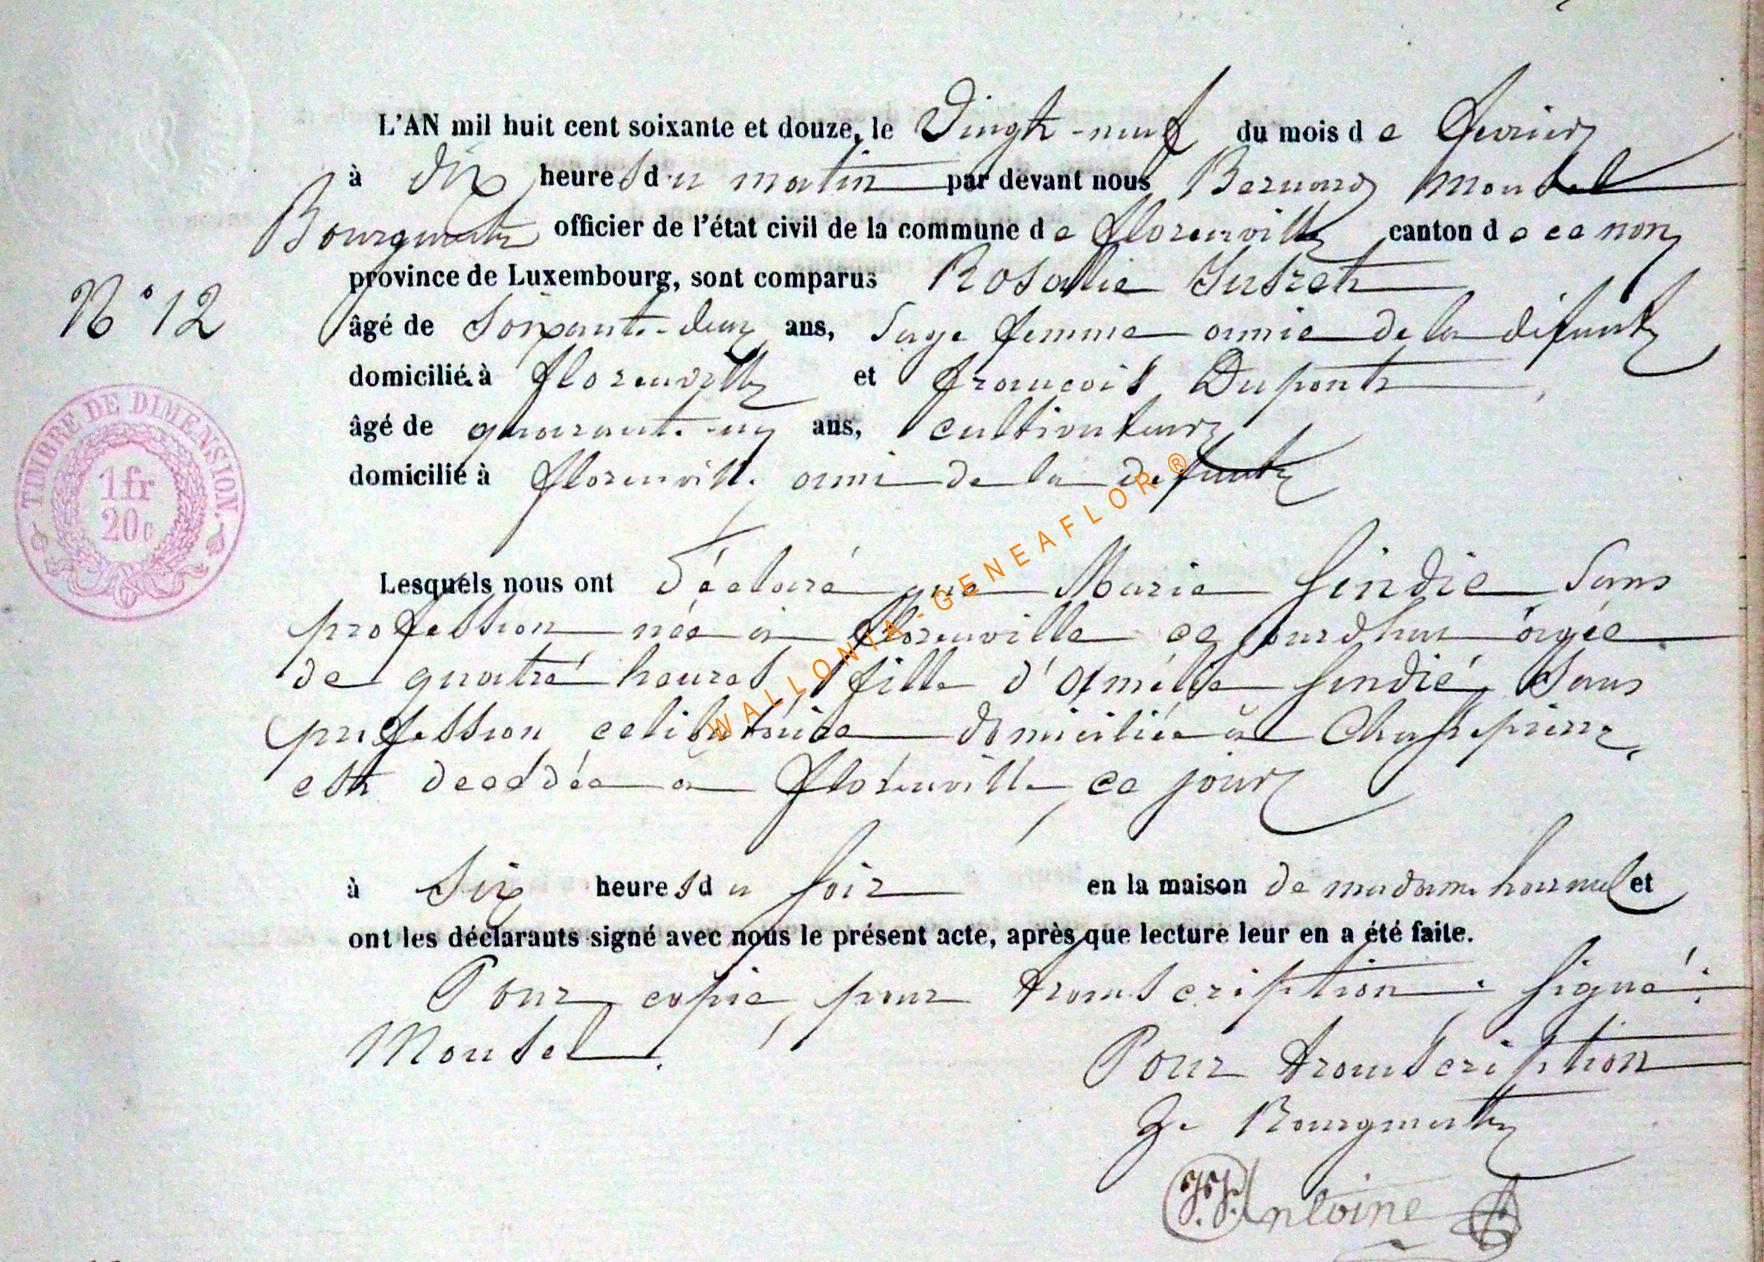 L'AN mil huit cent soixante et douze, le Vingt-neuf du mois de fevrier
à Dix heures du matin par devant nous Bernard Mousel
Bourgmestre officier de l'état civil de la commune de florenville canton de ce nom
province de Luxembourg, sont comparus Rosallie
N° 12
âgé de Soixante-deux ans, Sage femme amie de la défunte
domicilié à florenville et françois Dupont
âgé de quarante-un ans, cultivateur
domicilié à florenville ami de la defunte
TIMBRE DE DIMENSION.
1fr
20c
Lesquels nous ont déclaré que Marie Sindie Sans
profession née à florenville ce jourdhui âgée
de quatre heures, fille d'Amélie Sindié, Sans
profession celibataire domiciliée à Chassepierre,
est decedée à florenville ce jour
à Six heures du Soir en la maison de madame et
ont les déclarants signé avec nous le présent acte, après que lecture leur en a été faite.
Pour copie pour transcription. Signé:
Mousel.
Pour transcription
Le Bourgmestre
Antoine
WALLONIA-GENEAFLOR®